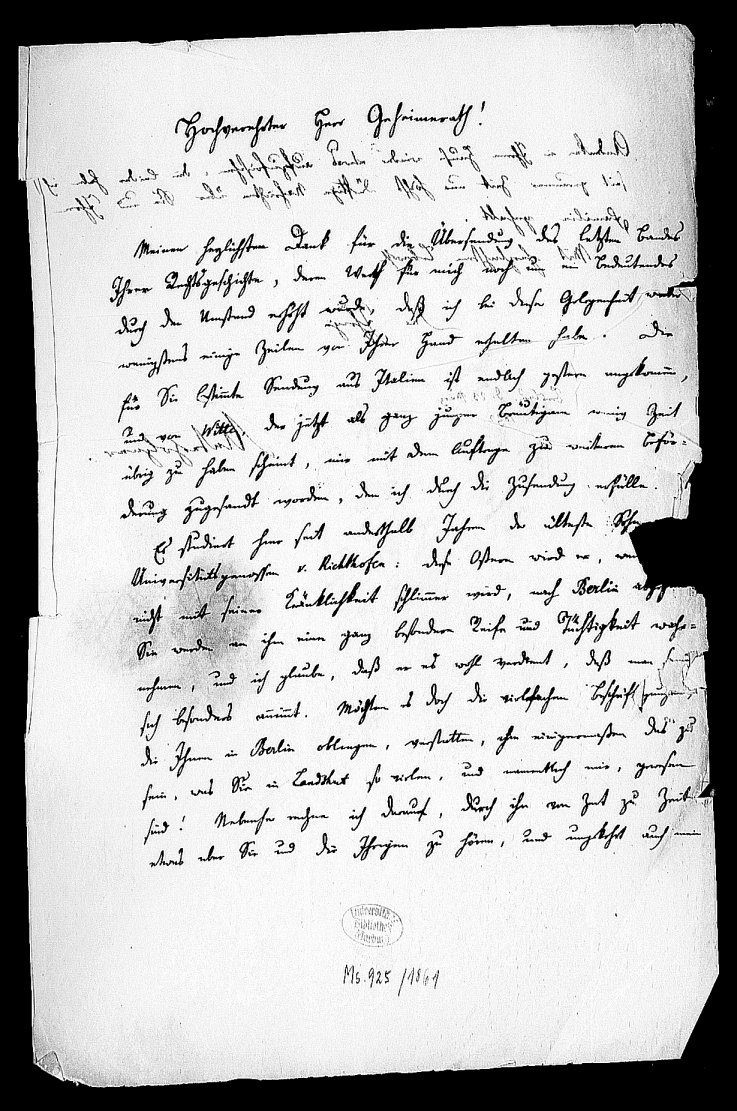 Hochverehrter Herr Geheimerath!
Meinen herzlichsten Dank für die Übersendung des letzten Bandes
Ihrer Rechtsgeschichte, deren Werth für mich noch um ein Bedeutendes
durch den Umstand erhöht wurde, daß ich bei dieser Gelegenheit wieder
wenigstens einige Zeilen von Ihrer Hand erhalten habe. Die
für Sie bestimmte Sendung aus Italien ist endlich gestern angekommen,
und von Witte, der jetzt als ganz junger Bräutigam wenig Zeit
übrig zu haben scheint, mir mit dem Auftrage zu weiterer Beför-
derung zugesandt worden, den ich durch die Zusendung erfülle.
Es studiert hier seit anderthalb Jahren der älteste Sohn
Universitätsgenossen v. Richthofen: diese Ostern wird er, wenn
nicht mit seiner Kränklichkeit schlimmer wird, nach Berlin
Sie werden an ihm eine ganz besondere Reife und Tüchtigkeit wahr-
nehmen, und ich glaube, daß er es wohl verdient, daß man
sich besonders annimmt. Möchten es doch die vielfachen Beschäftigungen,
die Ihnen in Berlin obliegen, verstatten, ihm einigermaßen das zu
sein, was Sie in Landshut so vielen, und namentlich mir, gewesen
sind! Nebenher rechne ich darauf, durch ihn von Zeit zu Zeit
etwas über Sie und die Ihrigen zu hören, und umgekehrt auch mein
Universitäts
Bibliothek
Marburg
Ms. 925/1061